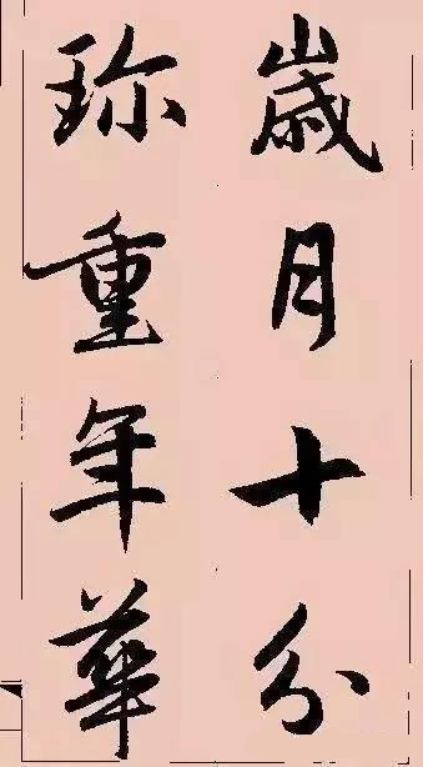 歲月十分
珎重年華